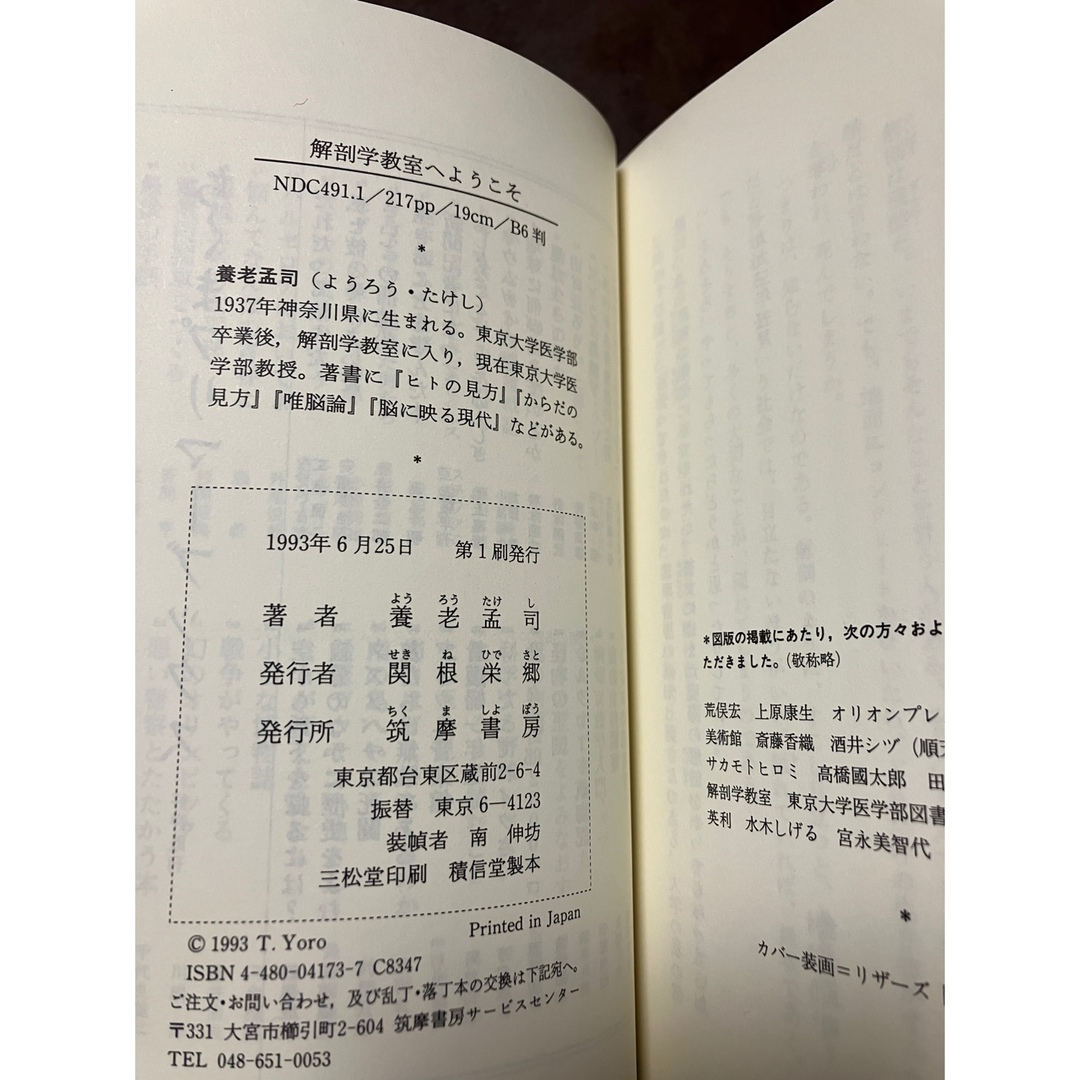 解剖学教室へようこそ
NDC491.1／217pp／19cm／B6判
*
養老孟司（ようろう・たけし）
1937年神奈川県に生まれる。東京大学医学部
卒業後，解剖学教室に入り，現在東京大学医
学部教授。著書に『ヒトの見方』『からだの
見方』『唯脳論』『脳に映る現代』などがある。
*
1993年6月25日 第1刷発行
よう ろう たけ し
著者 養老孟司
せき ね ひで さと
発行者 関根栄郷
ちく ま しよ ぼう
発行所 筑摩書房
東京都台東区蔵前2-6-4
振替 東京6―4123
装幀者 南 伸坊
三松堂印刷 積信堂製本
Printed in Japan
© 1993 T. Yoro
ISBN 4-480-04173-7 C8347
ご注文・お問い合わせ，及び乱丁・落丁本の交換は下記宛へ。
〒331 大宮市櫛引町2-604 筑摩書房サービスセンター
TEL 048-651-0053
*図版の掲載にあたり，次の方々およ
ただきました。（敬称略）
荒俣宏 上原康生 オリオンプレ
美術館 斎藤香織 酒井シヅ（順天
サカモトヒロミ 高橋國太郎 田
解剖学教室 東京大学医学部図書
英利 水木しげる 宮永美智代
*
カバー装画＝リザーズ